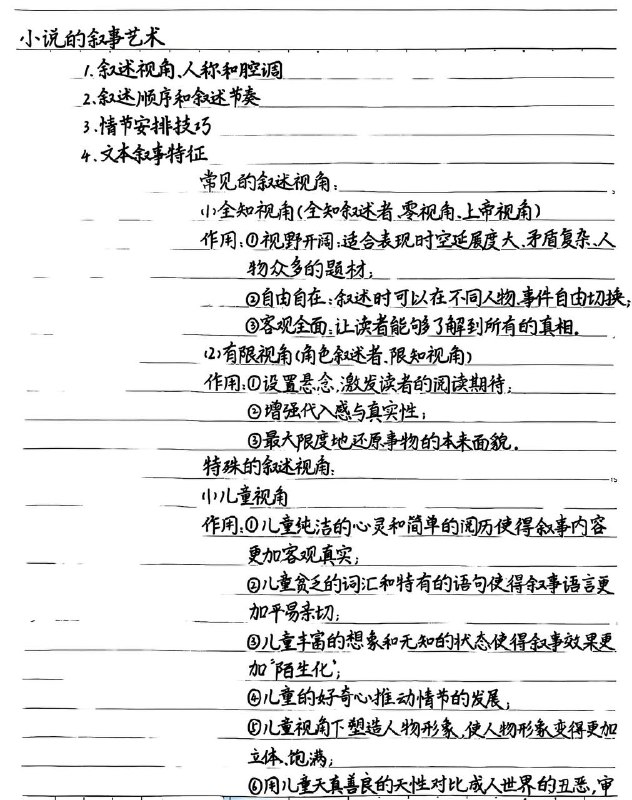 小说的叙事艺术
1.叙述视角、人称和腔调
2.叙述顺序和叙述节奏
3.情节安排技巧
4.文本叙事特征
常见的叙述视角:
(1)全知视角(全知叙述者、零视角、上帝视角)
作用:①视野开阔:适合表现时空延展度大、矛盾复杂、人
物众多的题材;
②自由自在:叙述时可以在不同人物、事件自由切换;
③客观全面:让读者能够了解到所有的真相。
(2)有限视角(角色叙述者、限知视角)
作用:①设置悬念,激发读者的阅读期待;
②增强代入感与真实性;
③最大限度地还原事物的本来面貌。
特殊的叙述视角:
(1)儿童视角
作用:①儿童纯洁的心灵和简单的阅历使得叙事内容
更加客观真实;
②儿童贫乏的词汇和特有的语句使得叙事语言更
加平易亲切;
③儿童丰富的想象和无知的状态使得叙事效果更
加“陌生化”;
④儿童的好奇心推动情节的发展;
⑤儿童视角下塑造人物形象,使人物形象变得更加
立体、饱满;
⑥用儿童天真善良的天性对比成人世界的丑恶,审